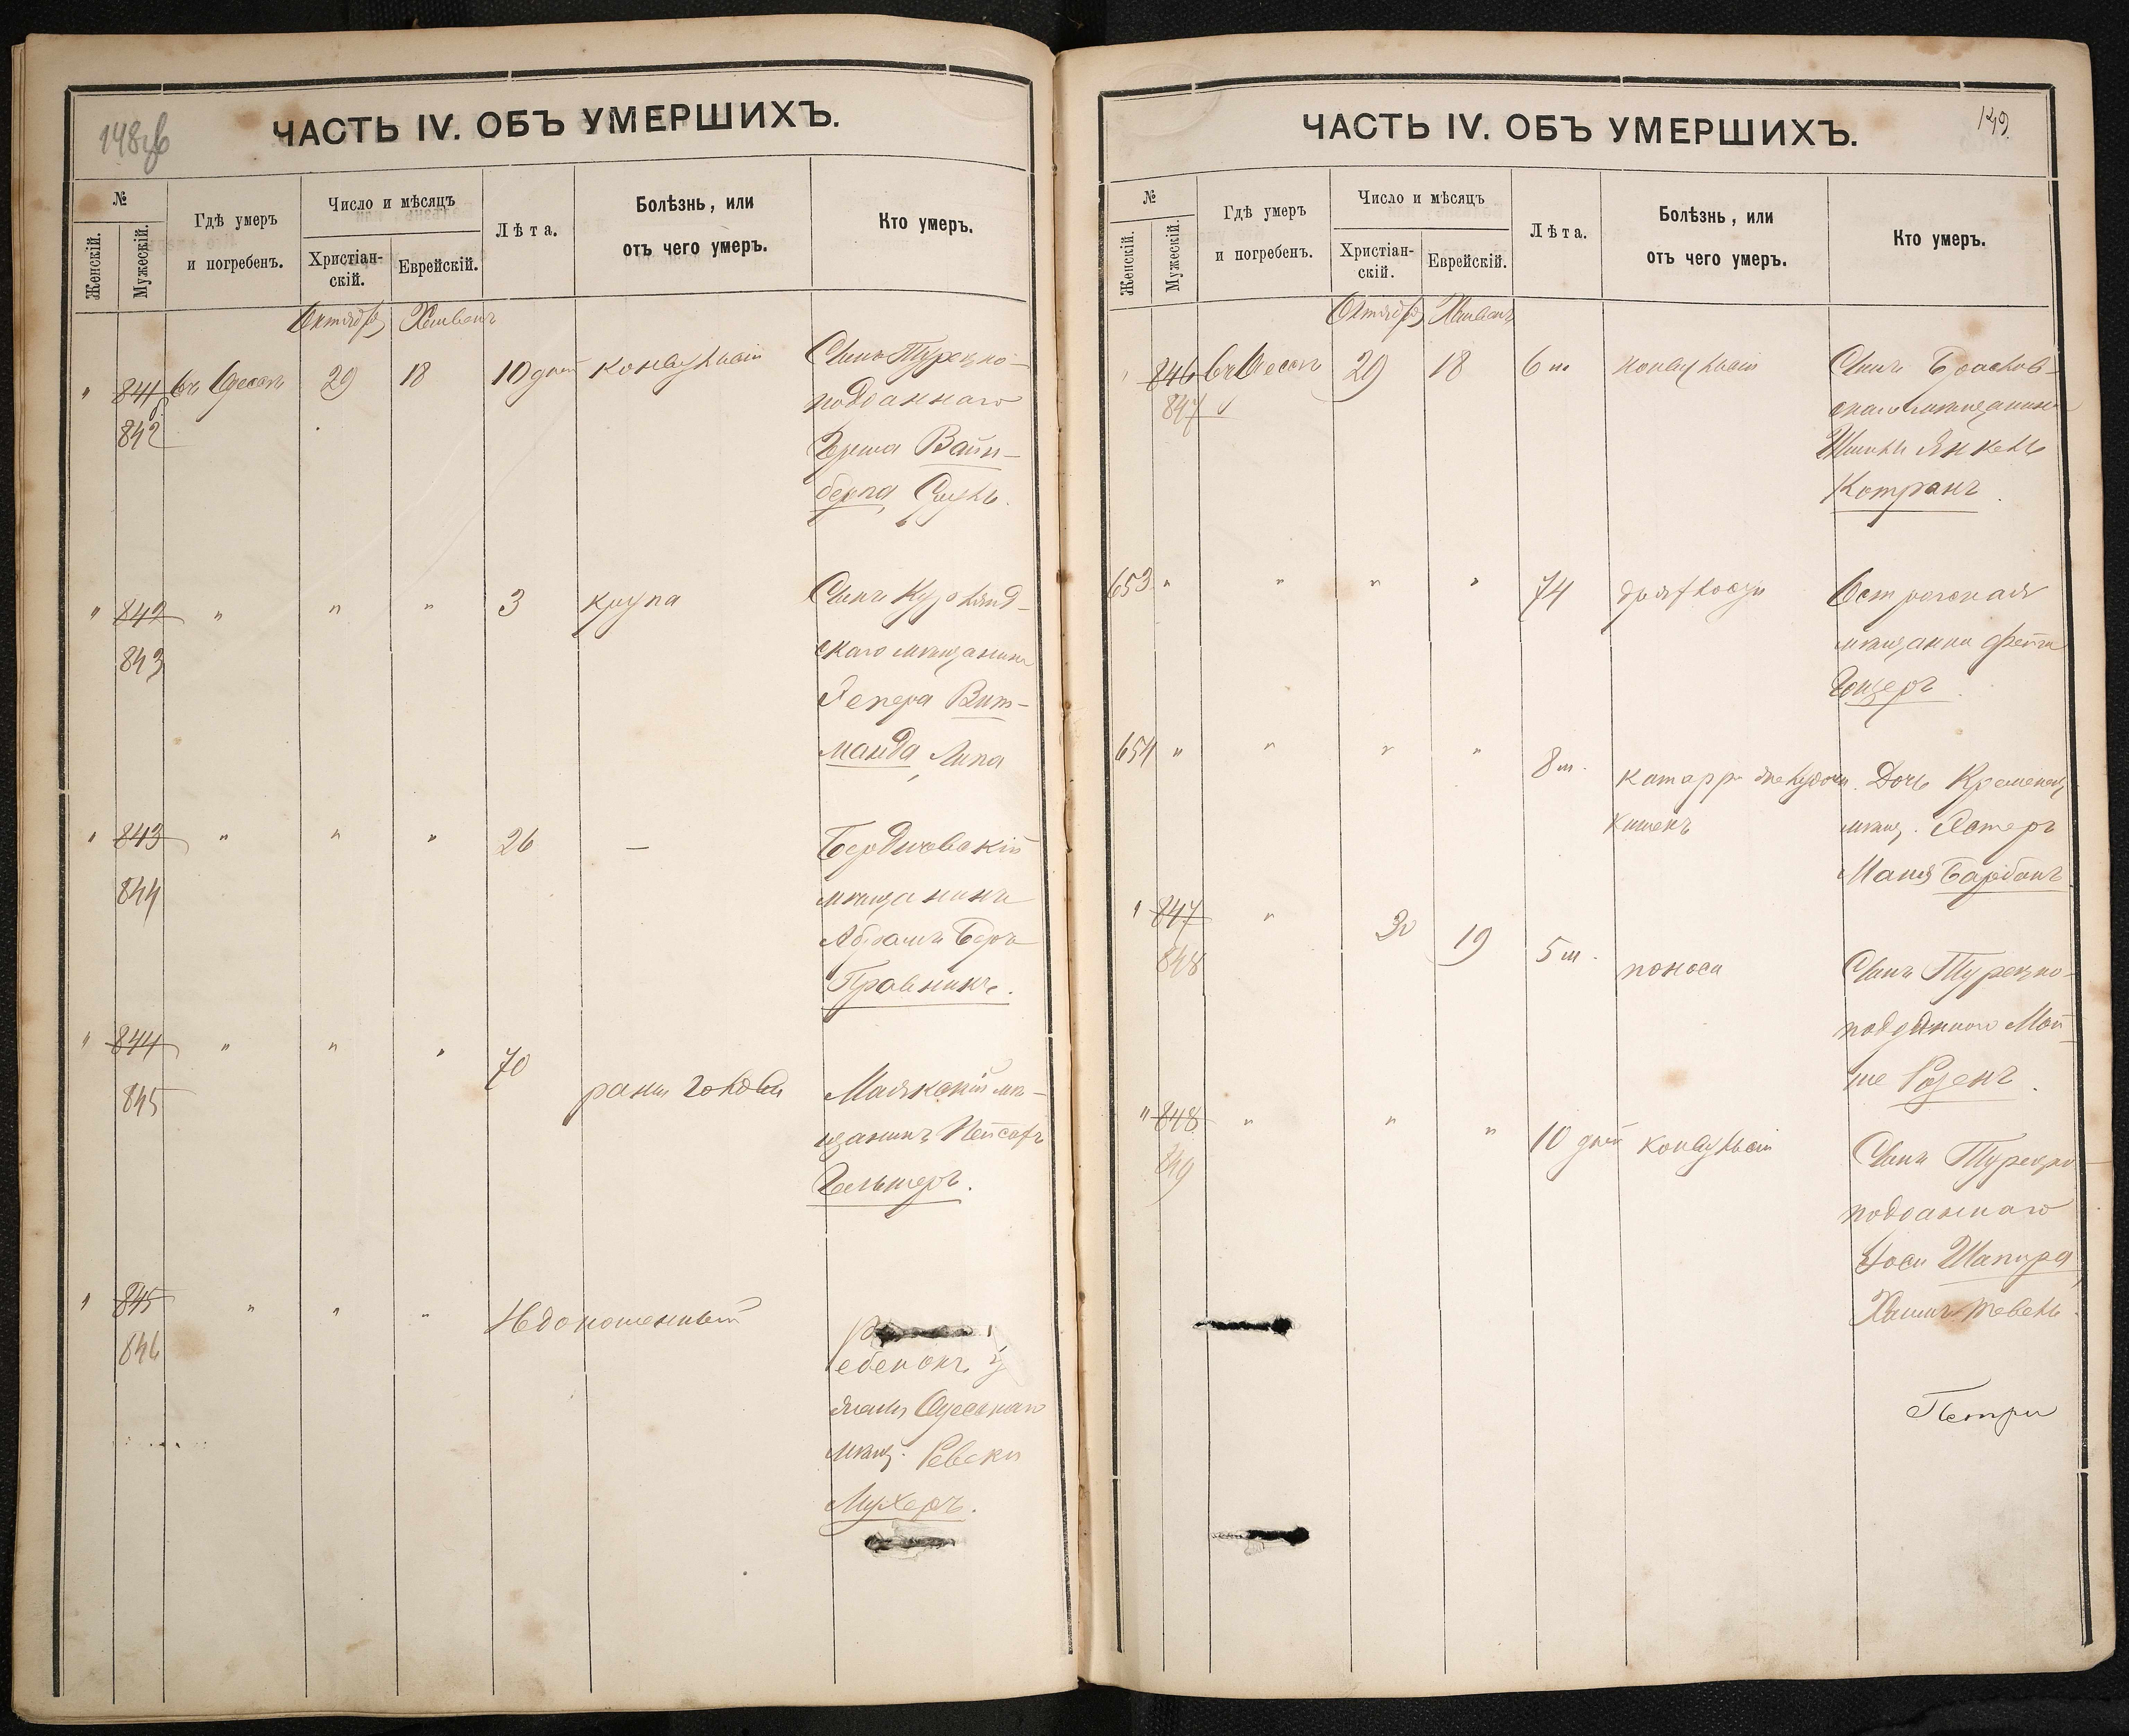 148об
ЧАСТЬ IV. ОБЪ УМЕРШИХЪ.
№
Женскій.
Мужескій.
Гдѣ умеръ
и погребенъ.
Число и мѣсяцъ
Христіан-
скій.
Еврейскій.
Лѣта.
Болѣзнь, или
отъ чего умеръ.
Кто умеръ.
Октябрь Хешванъ
" 841 въ Одессѣ 29 18 10 дней конвульсіи Сынъ Турецко-
842 подданнаго
Герша Вайн-
берга,
" 842 " " " 3 крупа Сынъ Курлянд-
843 скаго мѣщанина
Вит-
манда, Липа
" 843 " " " 26 — Бердичевскій
844 мѣщанинъ
Абрамъ Беръ
Правникъ.
" 844 " " " 70 раны головы Маякскій мѣ-
845 щанинъ Пейсахъ
Гельтеръ.
" 845 " " " Недоношенный
846 ребенокъ у
жены Одесскаго
мѣщ. Ревеки
Мухеръ.
149
ЧАСТЬ IV. ОБЪ УМЕРШИХЪ.
№
Женскій.
Мужескій.
Гдѣ умеръ
и погребенъ.
Число и мѣсяцъ
Христіан-
скій.
Еврейскій.
Лѣта.
Болѣзнь, или
отъ чего умеръ.
Кто умеръ.
Октябрь Хешванъ
" 846 въ Одессѣ 29 18 6 м конвульсіи Сынъ
847 скаго мѣщанина
Янкель
Котранъ.
653 " " " " 74 дряхлости Острогская
мѣщанка Фейга
Гонзеръ.
654 " " " " 8 м. катарръ желудочн. Дочь Кременец.
кишекъ мѣщ. Эстеръ
Маня Барбанъ
" 847 " 30 19 5 м. поноса Сынъ Турецко-
848 подданнаго Мой-
ше Розенъ.
" 848 " " " 10 дней конвульсіи Сынъ Турецко-
849 подданнаго
Іоси Шапира,
Хаимъ-
Петри